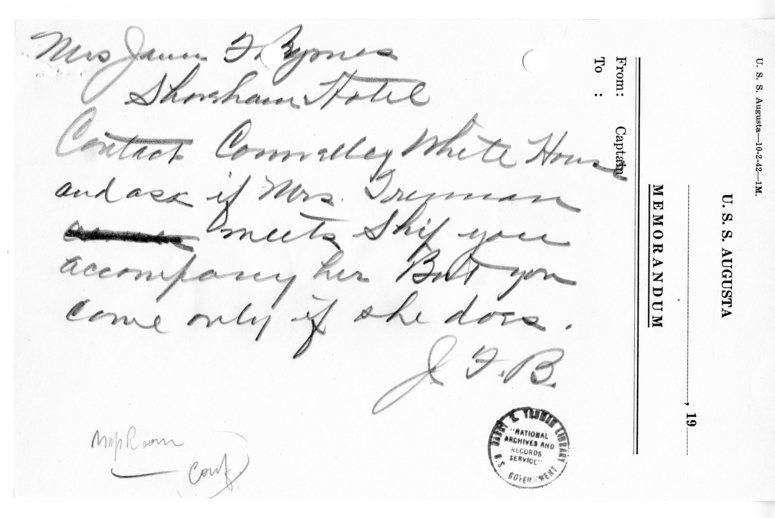 Mrs James F. Byrnes
Shoreham Hotel
Contact Connelley White House
and ask if Mrs. Truman
meets ship you
accompany her But you
come only if she does.
J. F. B.
Map Room
conf
HARRY S. TRUMAN LIBRARY
"NATIONAL
ARCHIVES AND
RECORDS
SERVICE"
U.S. GOVERNMENT
U. S. S. Augusta—10-2-42—1M.
U. S. S. AUGUSTA
, 19
MEMORANDUM
From: Captain
To :